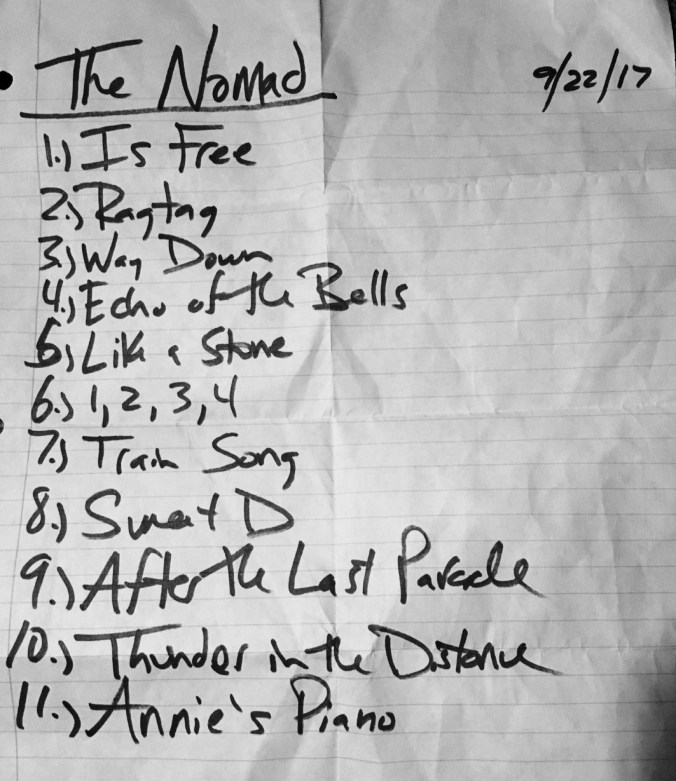 The Nomad 9/22/17
1.) Is Free
2.) Ragtag
3.) Way Down
4.) Echo of the Bells
5.) Like a Stone
6.) 1, 2, 3, 4
7.) Train Song
8.) Sweat D
9.) After the Last Parade
10.) Thunder in the Distance
11.) Annie's Piano